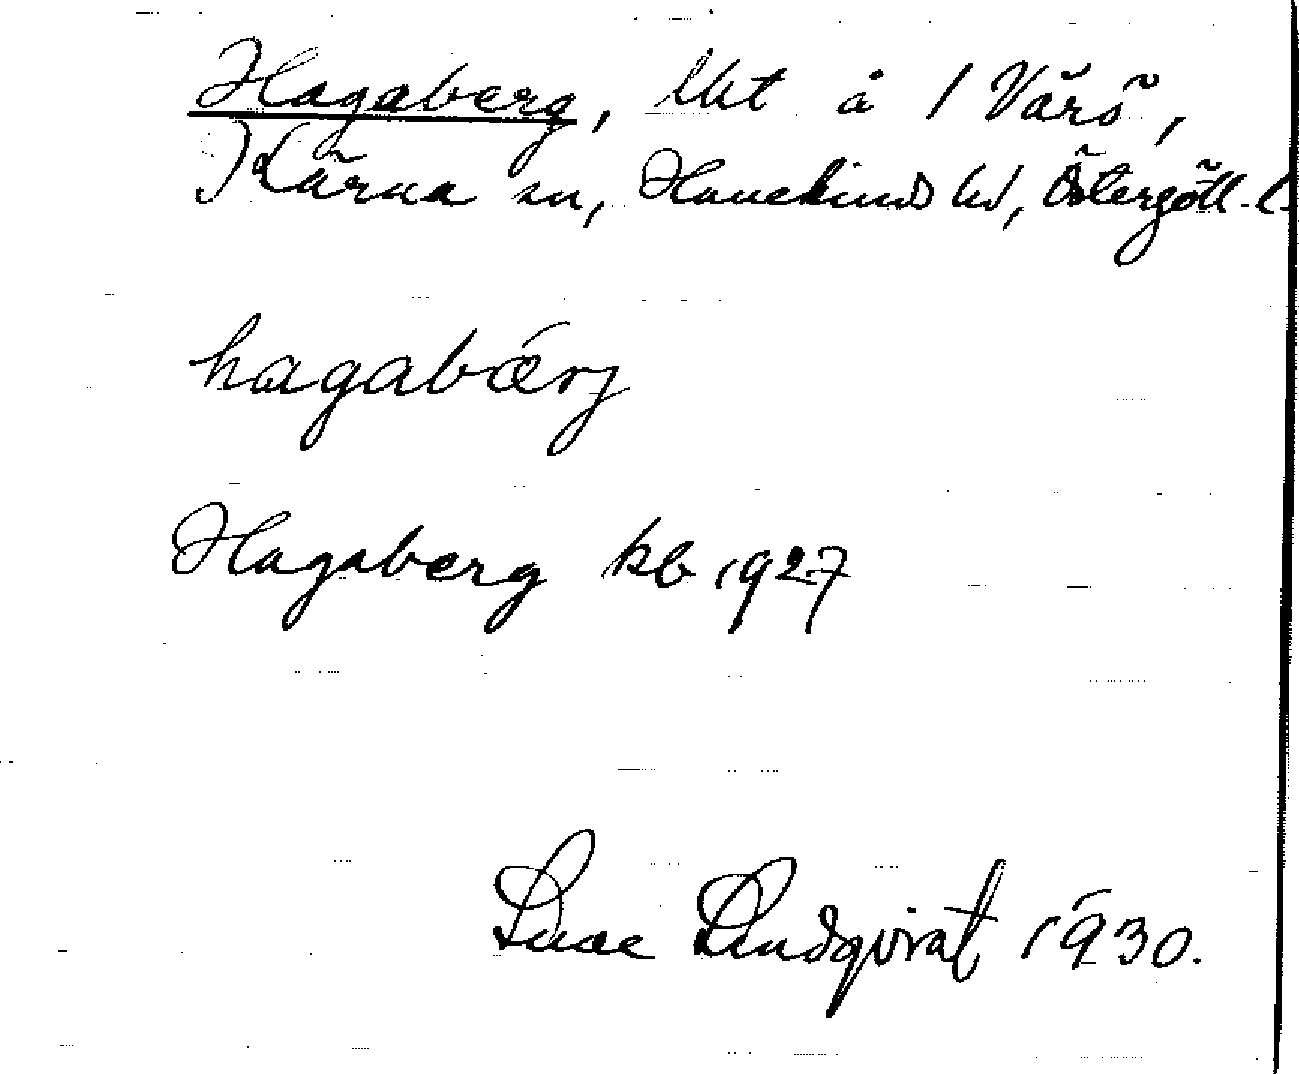 Hagaberg, lht å 1 Värö,
Kärna sn, Hanekinds hd, Östergötl. l.
hagabǽrj
Hagaberg kb 1927
Lindqvist 1930.